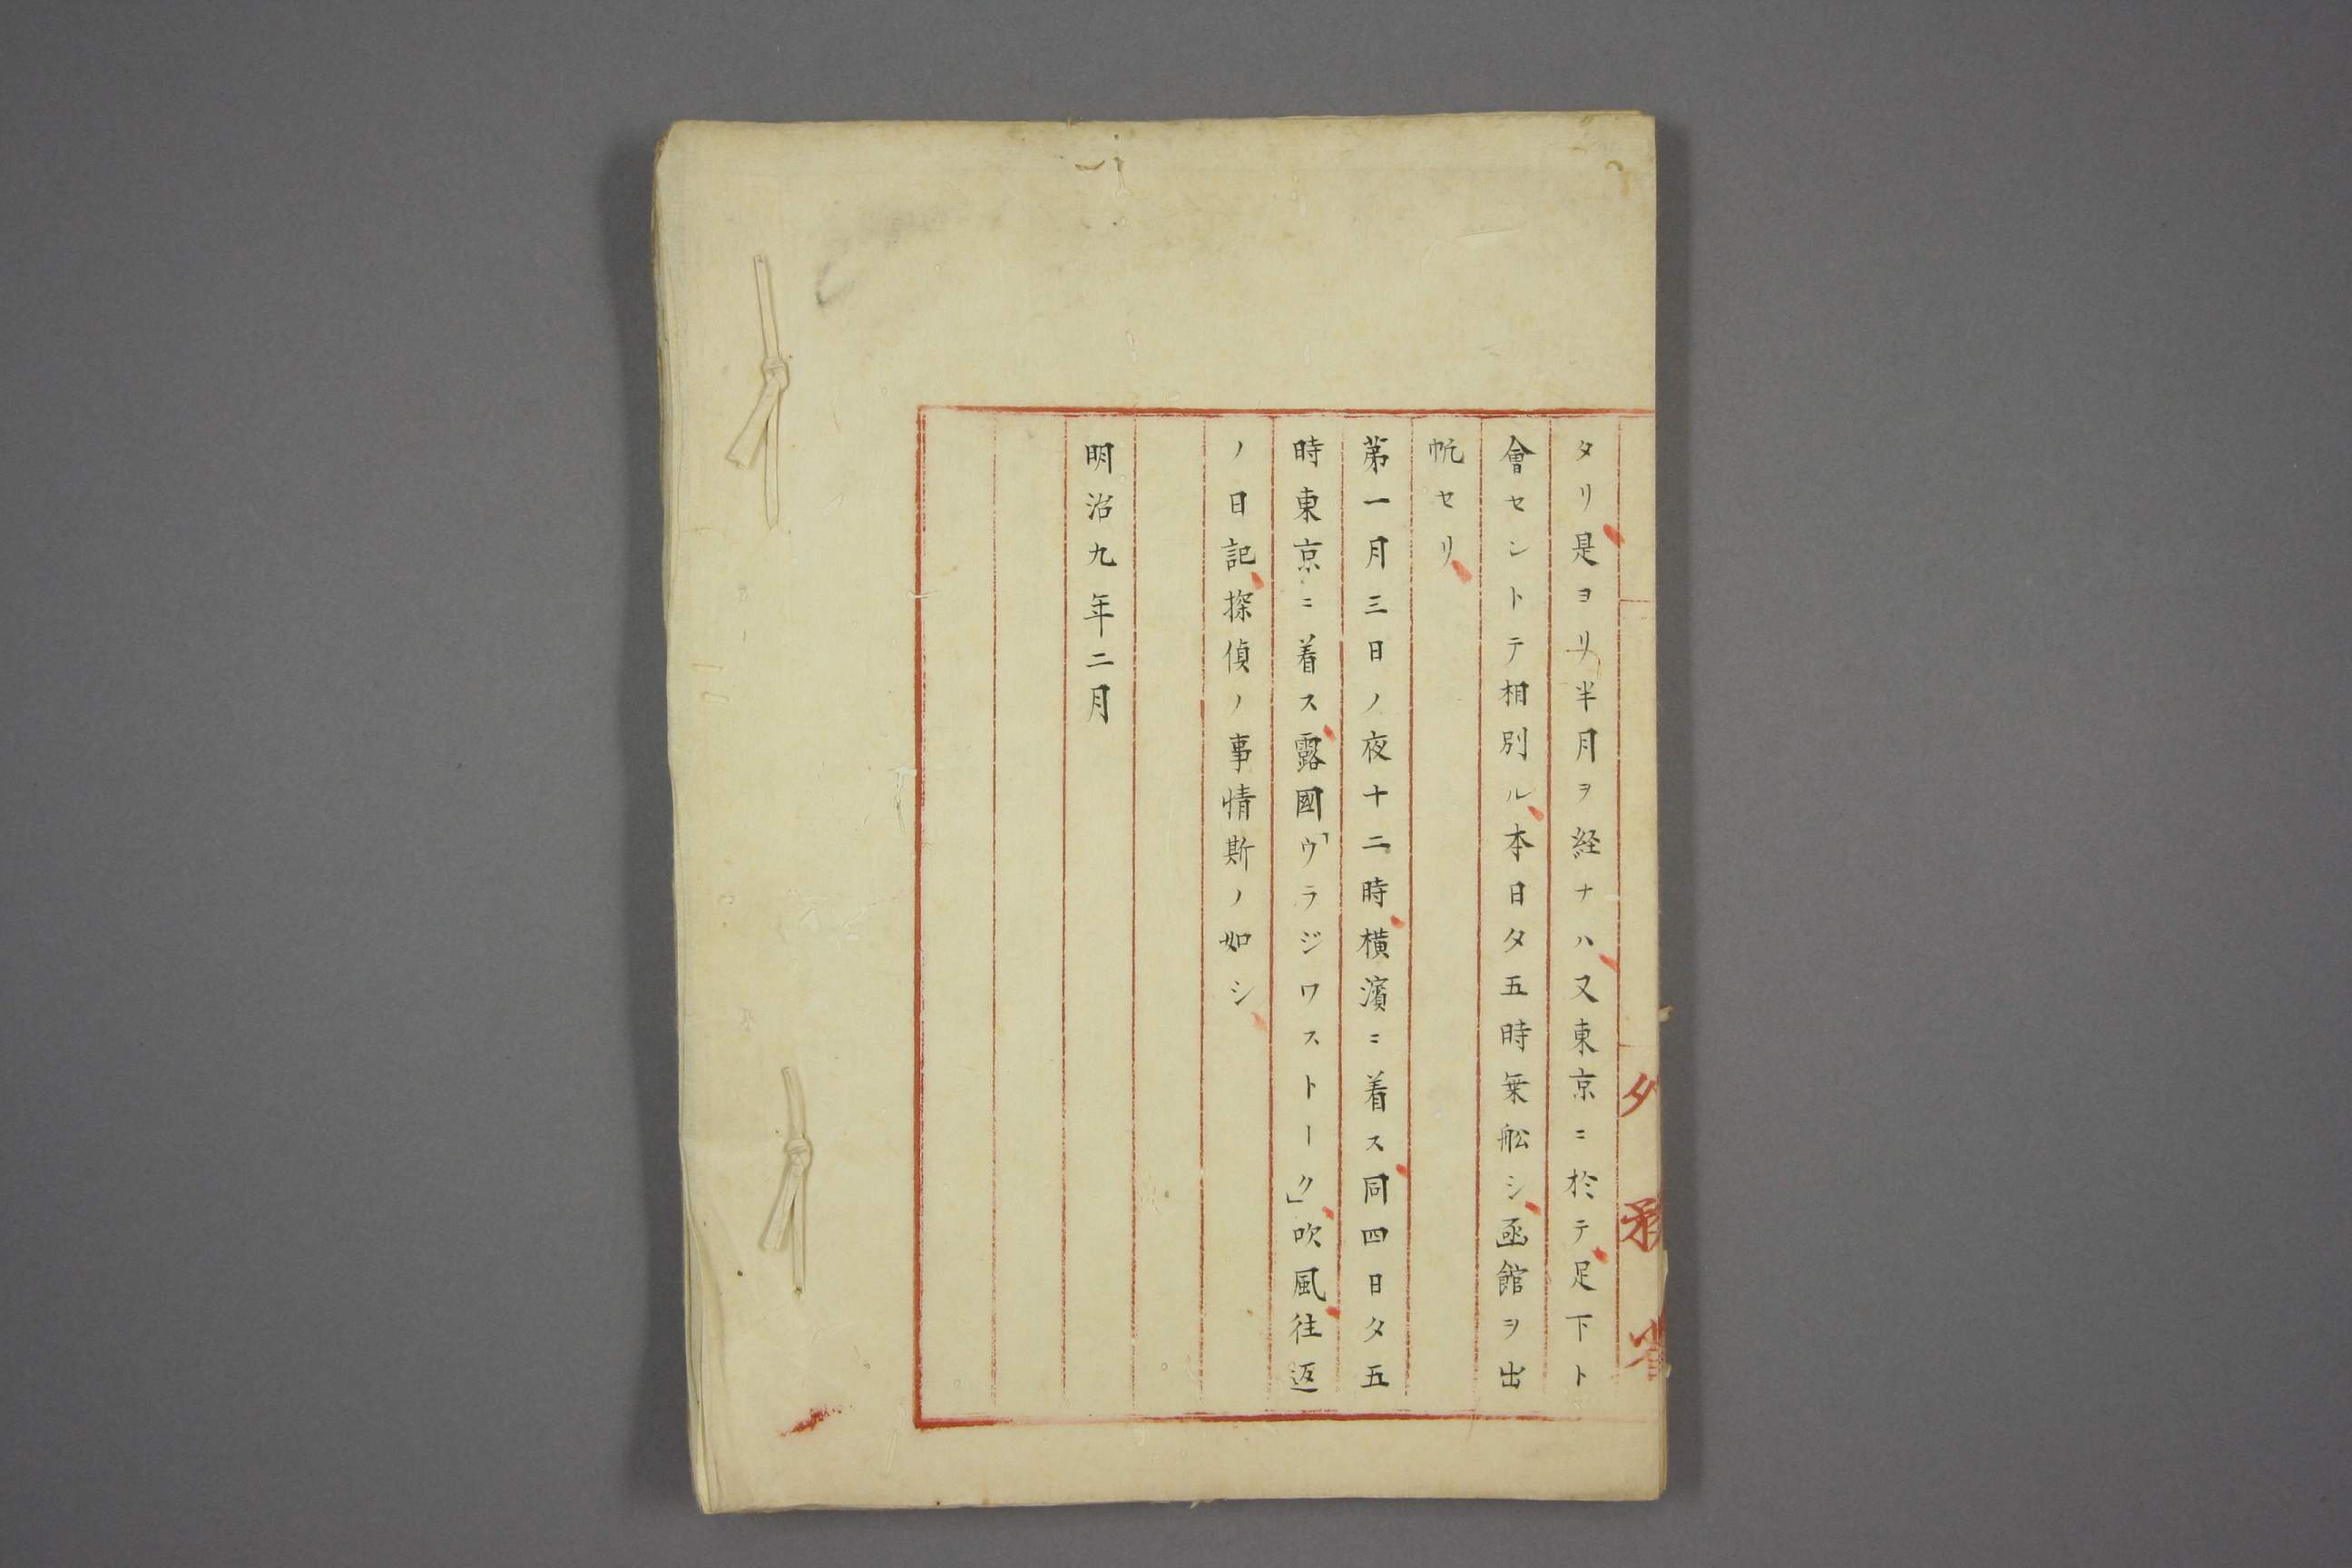 タリ是ヨリ半月ヲ経ナハ又東京ニ於テ足下ト
會セントテ相別ル本日夕五時乗舩シ凾館ヲ出
帆セリ
第一月三日ノ夜十二時横濱ニ着ス同四日夕五
時東京ニ着ス露國「ウラジワストーク」吹風往返
ノ日記探偵ノ事情斯ノ如シ
明治九年二月
外務省